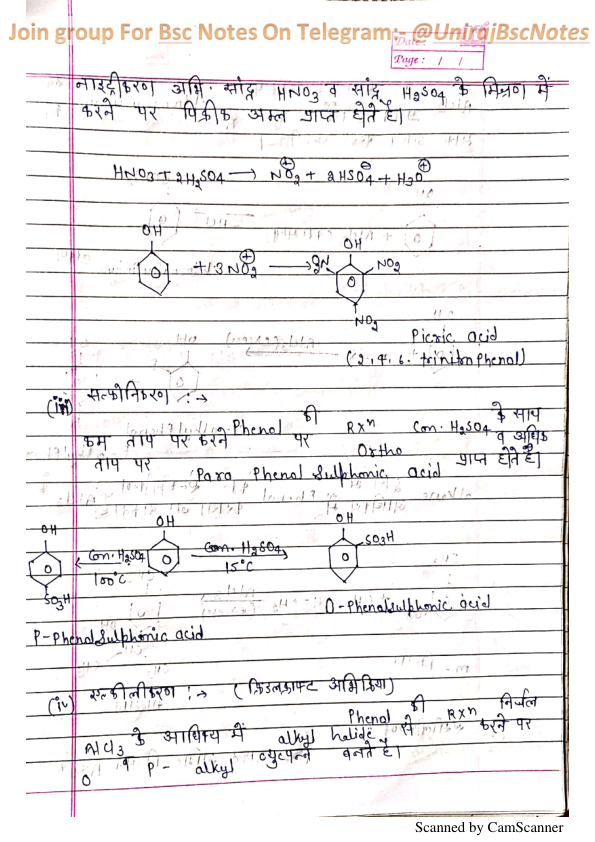 Join group For Bsc Notes On Telegram:- @UnirajBscNotes
Date:
Page: / /
नाइट्रीकरण अभि. सांद्र HNO3 व सांद्र H2SO4 के मिश्रण में
करने पर पिक्रीक अम्ल प्राप्त होते है।
HNO3 + 2H2SO4 → NO2⊕ + 2HSO4⊖ + H3O⊕
OH OH
+ 3NO2⊕ → O2N NO2
NO2
Picric acid
(2,4,6. trinitrophenol)
(iii) सल्फोनिकरण :→
Phenol की Rxn Con. H2SO4 के साथ
कम ताप पर करने पर Ortho व अधिक
ताप पर Para Phenol Sulphonic acid प्राप्त होते है।
OH OH OH
Con. H2SO4 Con. H2SO4 SO3H
100°C 15°C
SO3H O-Phenolsulphonic acid
P-Phenolsulphonic acid
(iv) एल्कीलीकरण :→ (फ्रिडलक्राफ्ट अभिक्रिया)
Phenol की Rxn निर्जल
AlCl3 के आधिक्य में alkyl halide से करने पर
O व P- alkyl व्युत्पन्न बनते है।
Scanned by CamScanner